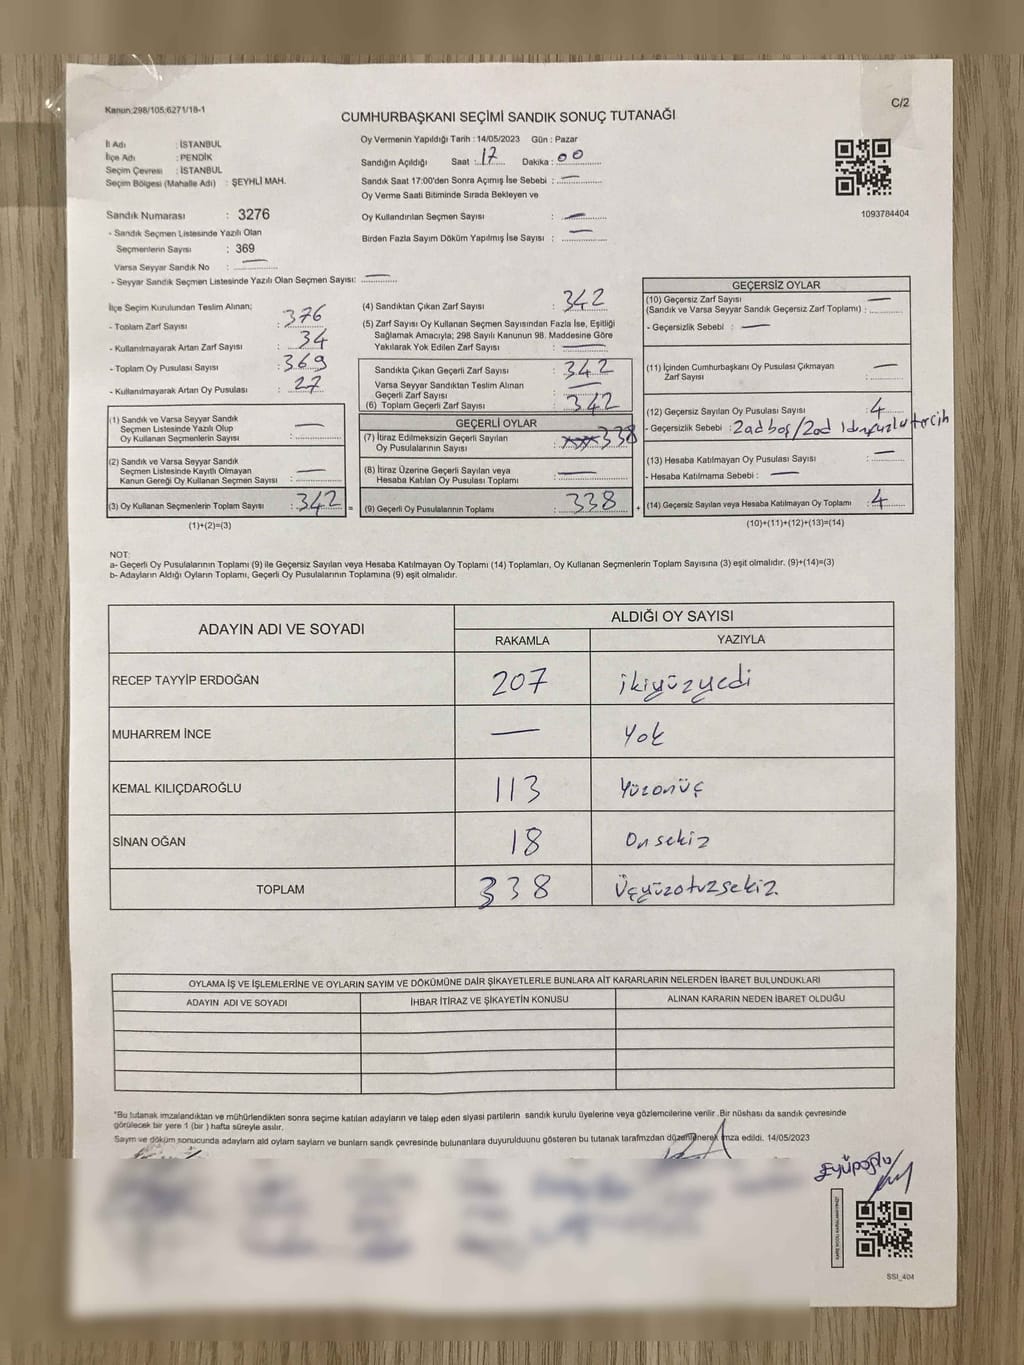 Kanun:298/105;6271/18-1
C/2
CUMHURBAŞKANI SEÇİMİ SANDIK SONUÇ TUTANAĞI
İl Adı : İSTANBUL
İlçe Adı : PENDİK
Seçim Çevresi : İSTANBUL
Seçim Bölgesi (Mahalle Adı) : ŞEYHLİ MAH.
Sandık Numarası : 3276
- Sandık Seçmen Listesinde Yazılı Olan
Seçmenlerin Sayısı : 369
Varsa Seyyar Sandık No : —
- Seyyar Sandık Seçmen Listesinde Yazılı Olan Seçmen Sayısı: —
Oy Vermenin Yapıldığı Tarih : 14/05/2023 Gün : Pazar
Sandığın Açıldığı Saat : 17 Dakika : 00
Sandık Saat 17:00'den Sonra Açımış İse Sebebi : —
Oy Verme Saati Bitiminde Sırada Bekleyen ve
Oy Kullandırılan Seçmen Sayısı : —
Birden Fazla Sayım Döküm Yapılmış İse Sayısı : —
1093784404
İlçe Seçim Kurulundan Teslim Alınan;
- Toplam Zarf Sayısı : 376
- Kullanılmayarak Artan Zarf Sayısı : 34
- Toplam Oy Pusulası Sayısı : 369
- Kullanılmayarak Artan Oy Pusulası : 27
(1) Sandık ve Varsa Seyyar Sandık
Seçmen Listesinde Yazılı Olup
Oy Kullanan Seçmenlerin Sayısı : —
(2) Sandık ve Varsa Seyyar Sandık
Seçmen Listesinde Kayıtlı Olmayan
Kanun Gereği Oy Kullanan Seçmen Sayısı : —
(3) Oy Kullanan Seçmenlerin Toplam Sayısı : 342 =
(1)+(2)=(3)
(4) Sandıktan Çıkan Zarf Sayısı : 342
(5) Zarf Sayısı Oy Kullanan Seçmen Sayısından Fazla İse, Eşitliği
Sağlamak Amacıyla; 298 Sayılı Kanunun 98. Maddesine Göre
Yakılarak Yok Edilen Zarf Sayısı : —
Sandıkta Çıkan Geçerli Zarf Sayısı : 342
Varsa Seyyar Sandıktan Teslim Alınan
Geçerli Zarf Sayısı : —
(6) Toplam Geçerli Zarf Sayısı : 342
GEÇERLİ OYLAR
(7) İtiraz Edilmeksizin Geçerli Sayılan
Oy Pusulalarının Sayısı : 338
(8) İtiraz Üzerine Geçerli Sayılan veya
Hesaba Katılan Oy Pusulası Toplamı : —
(9) Geçerli Oy Pusulalarının Toplamı : 338 +
GEÇERSİZ OYLAR
(10) Geçersiz Zarf Sayısı
(Sandık ve Varsa Seyyar Sandık Geçersiz Zarf Toplamı) : —
- Geçersizlik Sebebi : —
(11) İçinden Cumhurbaşkanı Oy Pusulası Çıkmayan
Zarf Sayısı : —
(12) Geçersiz Sayılan Oy Pusulası Sayısı : 4
- Geçersizlik Sebebi : 2 ad boş / 2 ad 1 den fazla tercih
(13) Hesaba Katılmayan Oy Pusulası Sayısı : —
- Hesaba Katılmama Sebebi : —
(14) Geçersiz Sayılan veya Hesaba Katılmayan Oy Toplamı : 4
(10)+(11)+(12)+(13)=(14)
NOT:
a- Geçerli Oy Pusulalarının Toplamı (9) ile Geçersiz Sayılan veya Hesaba Katılmayan Oy Toplamı (14) Toplamları, Oy Kullanan Seçmenlerin Toplam Sayısına (3) eşit olmalıdır. (9)+(14)=(3)
b- Adayların Aldığı Oyların Toplamı, Geçerli Oy Pusulalarının Toplamına (9) eşit olmalıdır.
ADAYIN ADI VE SOYADI
ALDIĞI OY SAYISI
RAKAMLA YAZIYLA
RECEP TAYYİP ERDOĞAN 207 ikiyüzyedi
MUHARREM İNCE — Yok
KEMAL KILIÇDAROĞLU 113 Yüzonüç
SİNAN OĞAN 18 Onsekiz
TOPLAM 338 Üçyüzotuzsekiz.
OYLAMA İŞ VE İŞLEMLERİNE VE OYLARIN SAYIM VE DÖKÜMÜNE DAİR ŞİKAYETLERLE BUNLARA AİT KARARLARIN NELERDEN İBARET BULUNDUKLARI
ADAYIN ADI VE SOYADI İHBAR İTİRAZ VE ŞİKAYETİN KONUSU ALINAN KARARIN NEDEN İBARET OLDUĞU
"Bu tutanak imzalandıktan ve mühürlendikten sonra seçime katılan adayların ve talep eden siyasi partilerin sandık kurulu üyelerine veya gözlemcilerine verilir .Bir nüshası da sandık çevresinde
görülecek bir yere 1 (bir ) hafta süreyle asılır.
Sayım ve döküm sonucunda adayların aldı oyların sayıların ve bunların sandık çevresinde bulunanlara duyurulduunu gösteren bu tutanak tarafmzdan düzenlenerek imza edildi. 14/05/2023
Eyüpoğlu
SSI_404